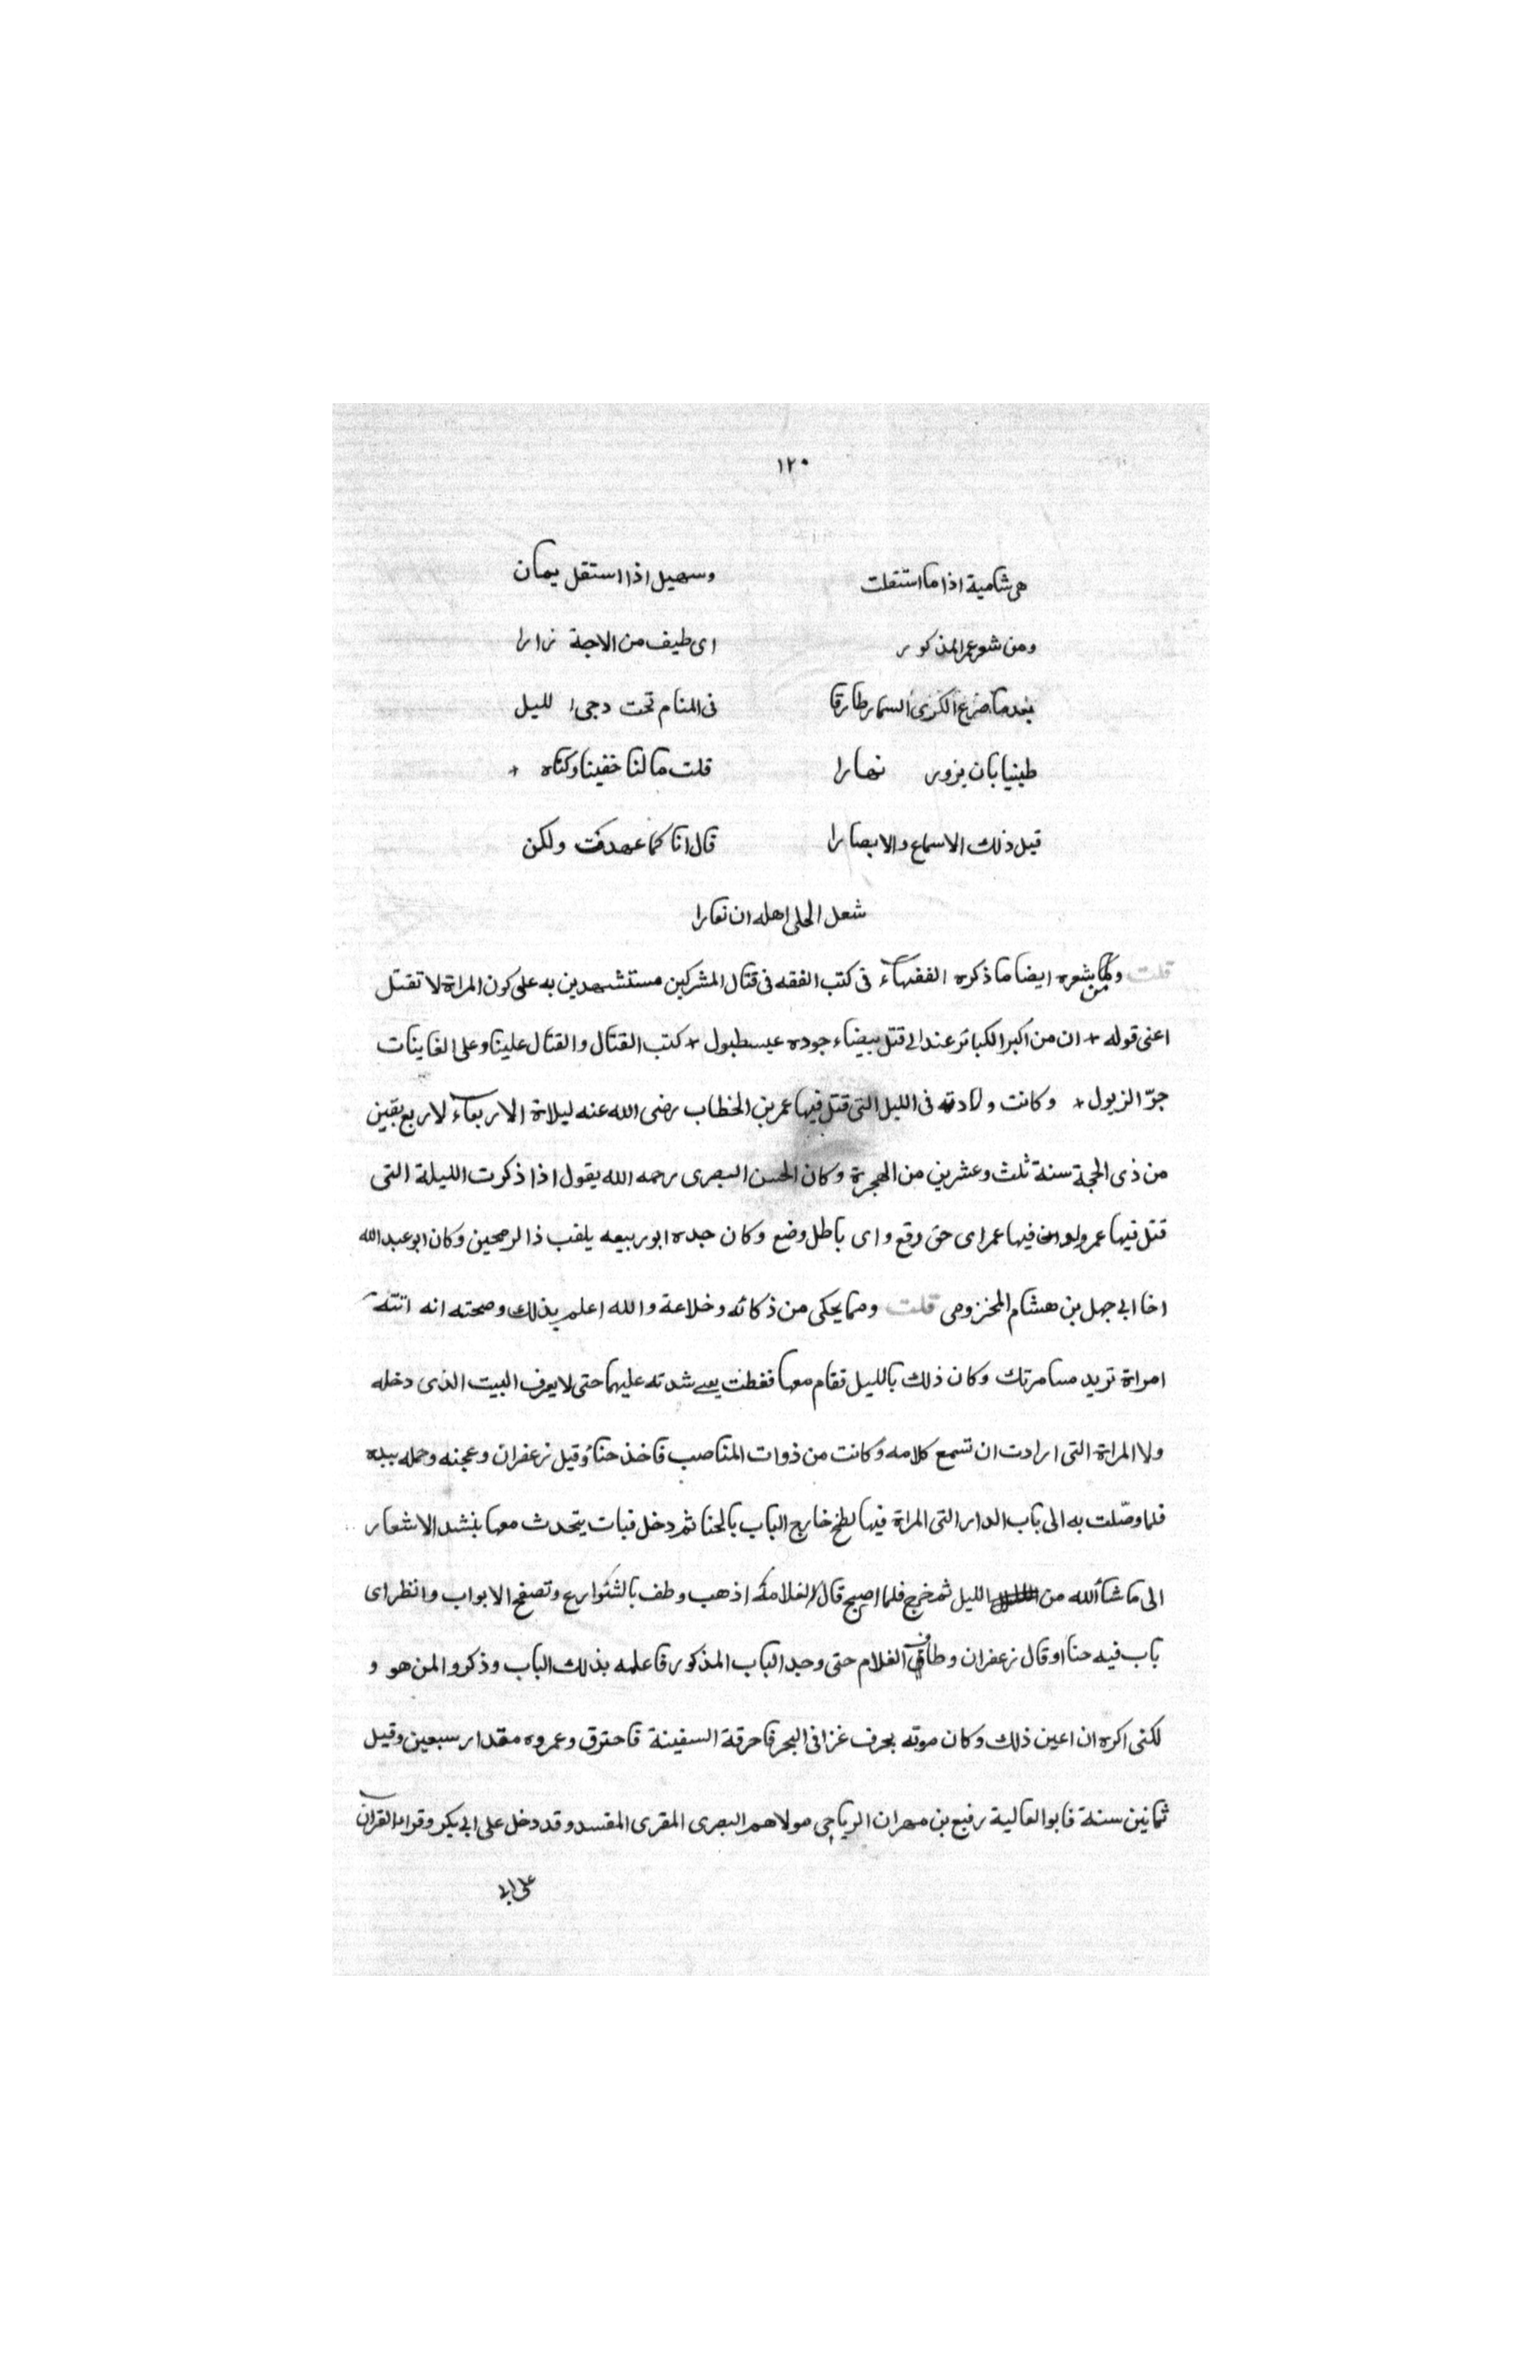 ١٢٠
هى شامية اذا ما استقلت وسهيل اذا استقل يمان
ومن شعر عمر المذكور اى طيف من الاحبة زارا
بعد ما صرع الكرى السمار طارقا فى المنام تحت دجى الليل
طينيا بان يزور نهارا قلت ما لنا خفينا وكتاه +
قيل ذلك الاسماع والابصارا قال انا كما عهدت ولكن
شعل الحلى اهله ان تعارا
قلت ومن شعره ايضا ما ذكره الفقهاء فى كتب الفقه فى قتال المشركين مستشهدين به على كون المراة لا تقتل
اعنى قوله + ان من اكبر الكبائر عندى قتل بيضاء جوده عيسطبول + كتب القتال والقتال علينا وعلى الغاينات
جرّ الزيول + وكانت ولادته فى الليل التى قتل فيها عمر بن الخطاب رضى الله عنه ليلاة الاربعاء لاربع بقين
من ذى الحجة سنة ثلث وعشرين من الهجرة وكان الحسن البصرى رحمه الله يقول اذا ذكرت الليلة التى
قتل فيها عمر وولد فيها عمر اى حق رفع واى باطل وضع وكان جده ابو ربيعه يلقب ذا الرمحين وكان ابو عبد الله
اخا ابى جهل بن هشام المخزومى قلت ومما يحكى من ذكائه وخلاعة والله اعلم بذلك وصحته انه اتته
امراة تريد مسامرتك وكان ذلك بالليل فقام معها فغطت شدته عليهما حتى لا يعرف البيت الذى دخله
ولا المراة التى ارادت ان تسمع كلامه وكانت من ذوات المناصب فاخذ حناً وقيل زعفران وعجنه وحمله بيده
فلما وصّلت به الى باب الدار التى المراة فيها لطخ خارج الباب بالحنا ثم دخل فبات يتحدث معها ينشد الاشعار
الى ما شأ الله من الليل ثم خرج فلما اصبح قال لغلامه اذهب وطف بالشوارع وتصفح الابواب وانظر اى
باب فيه حنا او قال زعفران وطاف الغلام حتى وجد الباب المذكور فاعلمه بذلك الباب وذكروا لمن هو و
لكنى اكره ان اعين ذلك وكان موته بحرف غزا فى البحر فاحرقة السفينة فاحترق وعمروه مقدار سبعين وقيل
ثمانين سنة فابو العالية رفيع بن مهران الرياحى مولاهم البصرى المقرى المفسد وقد دخل على ابى بكر وقراء القران
على ابى